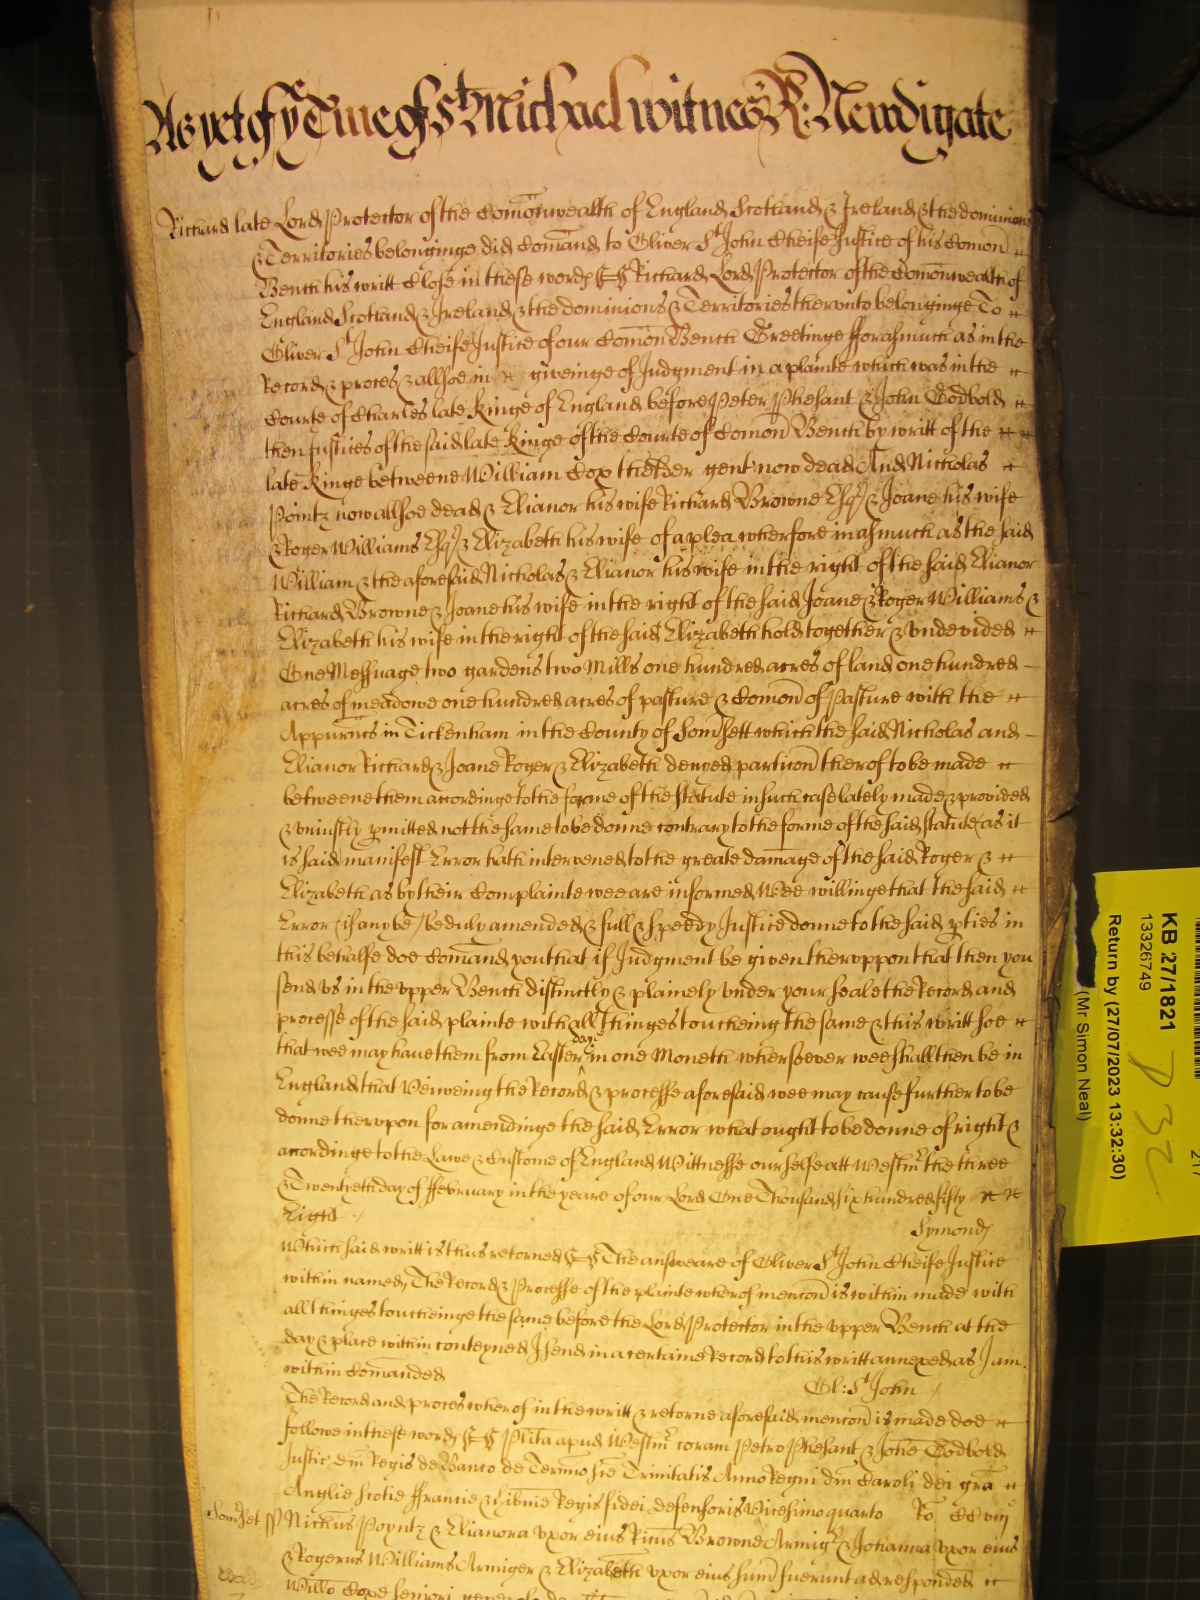 As yet of ye Tme of St Michael witnes R: Newdigate
Richard late Lord Protector of the Comonwealth of England Scotland & Ireland & the dominions
& Territories belonginge did Comand to Oliver St John Cheife Justice of his Comon
Bench his writt Close in these words SS Richard Lord Protector of the Comonwealth of
England Scotland & Ireland & the dominions & Territories thervnto belonginge To
Oliver St John Cheife Justice of our Comon Bench Greetinge fforasmuch as in the
Record & proces & allsoe in giveinge of Judgment in a plainte which was in the
Courte of Charles late Kinge of England before Peter Phesant & John Godbold
then Justices of the said late Kinge of the Courte of Comon Bench by writt of the
late Kinge betweene William Cox the elder gent now dead And Nicholas
Pointz now allsoe dead & Elianor his wife Richard Browne Esqr & Joane his wife
& Roger Williams Esqr & Elizabeth his wife of a plea wherfore inasmuch as the said
William & the aforesaid Nicholas & Elianor his wife in the right of the said Elianor
Richard Browne & Joane his wife in the right of the said Joane & Roger Williams &
Elizabeth his wife in the right of the said Elizabeth hold together & vndevided
One Messuage two gardens two Mills one hundred acres of land one hundred
acres of meadowe one hundred acres of pasture & Comon of Pasture with the
Appurtncs in Tickenham in the County of Somsett which the said Nicholas and
Elianor Richard & Joane Roger & Elizabeth denyed particon therof to be made
betweene them accordinge to the forme of the statute in such case lately made & provided
& vniustly pmitted not the same to be donne contrary to the forme of the said statute as it
is said manifest Error hath intervened to the greate damage of the said Roger &
Elizabeth as by their Complainte wee are informed Wee willinge that the said
Error (if any be) be duly amended & full & speedy Justice donne to the said pties in
this behalfe doe Comand you that if Judgment be given thervppon that then you
send vs in the vpper Bench distinctly & plainely vnder your seale the Record and
processe of the said plainte with all thinges toucheing the same & this writt soe
that wee may have them from Easter day in one Moneth whersoever wee shall then be in
England that Veiweing the Record & processe aforesaid wee may cause further to be
donne thervpon for amendinge the said Error what ought to be donne of right &
accordinge to the Lawe & Custome of England Wittnesse our selfe att Westmr the three
& Twentyeth day of ffebruary in the yeare of our Lord One Thousand six hundred fifty
Eight
Symonds
Which said writt is thus retorned SS The answeare of Oliver St John Cheife Justice
within named, The Record & Processe of the plainte wherof mencon is within made with
all thinges toucheinge the same before the Lord Protector in the vpper Bench at the
day & place within conteyned I send in a certaine Record to this writt annexed as I am
within Comanded
Ol: St John
The Record and proces wherof in the writt & retorne aforesaid mencon is made doe
followe in these words SS Plita apud Westmr coram Petro Phesant & Johe Godbold
Justic dni Regis de Banco de Termino sce Trinitatis Anno Regni dni Caroli dei gra
Anglie Scotie ffrancie & Hibnie Regis fidei defensoris Vicesimo quarto Ro CCviij
Somset ss Nichus Poyntz & Elianora vxor eius Ricus Browne Armigr & Johanna vxor eius
& Rogerus Williams Armiger & Elizabeth vxor eius sum fuerunt ad respondend
Willo Coxe seniori generoso de
KB 27/1821
13326749
Return by (27/07/2023 13:32:30)
(Mr Simon Neal)
P 32
217